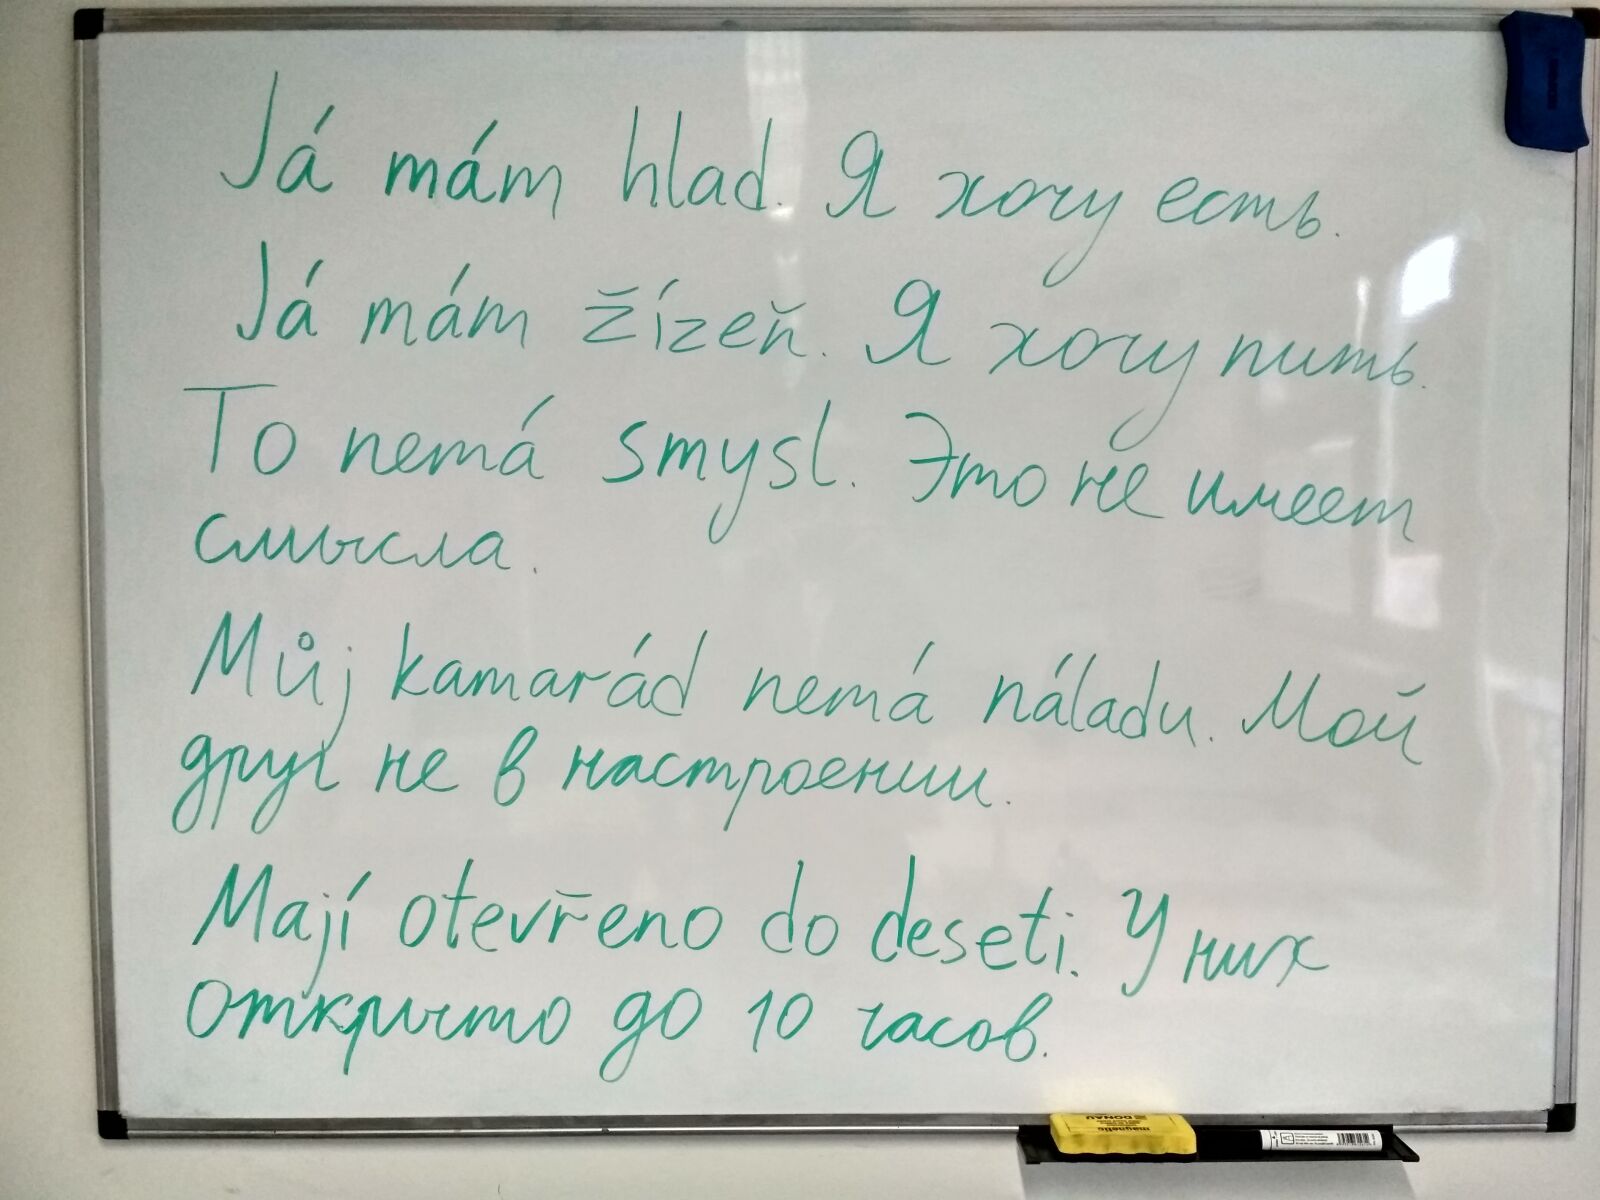 Já mám hlad. Я хочу есть.
Já mám žízeň. Я хочу пить.
To nemá smysl. Это не имеет
смысла.
Můj kamarád nemá náladu. Мой
друг не в настроении.
Mají otevřeno do deseti. У них
открыто до 10 часов.
DONAU
magnetic